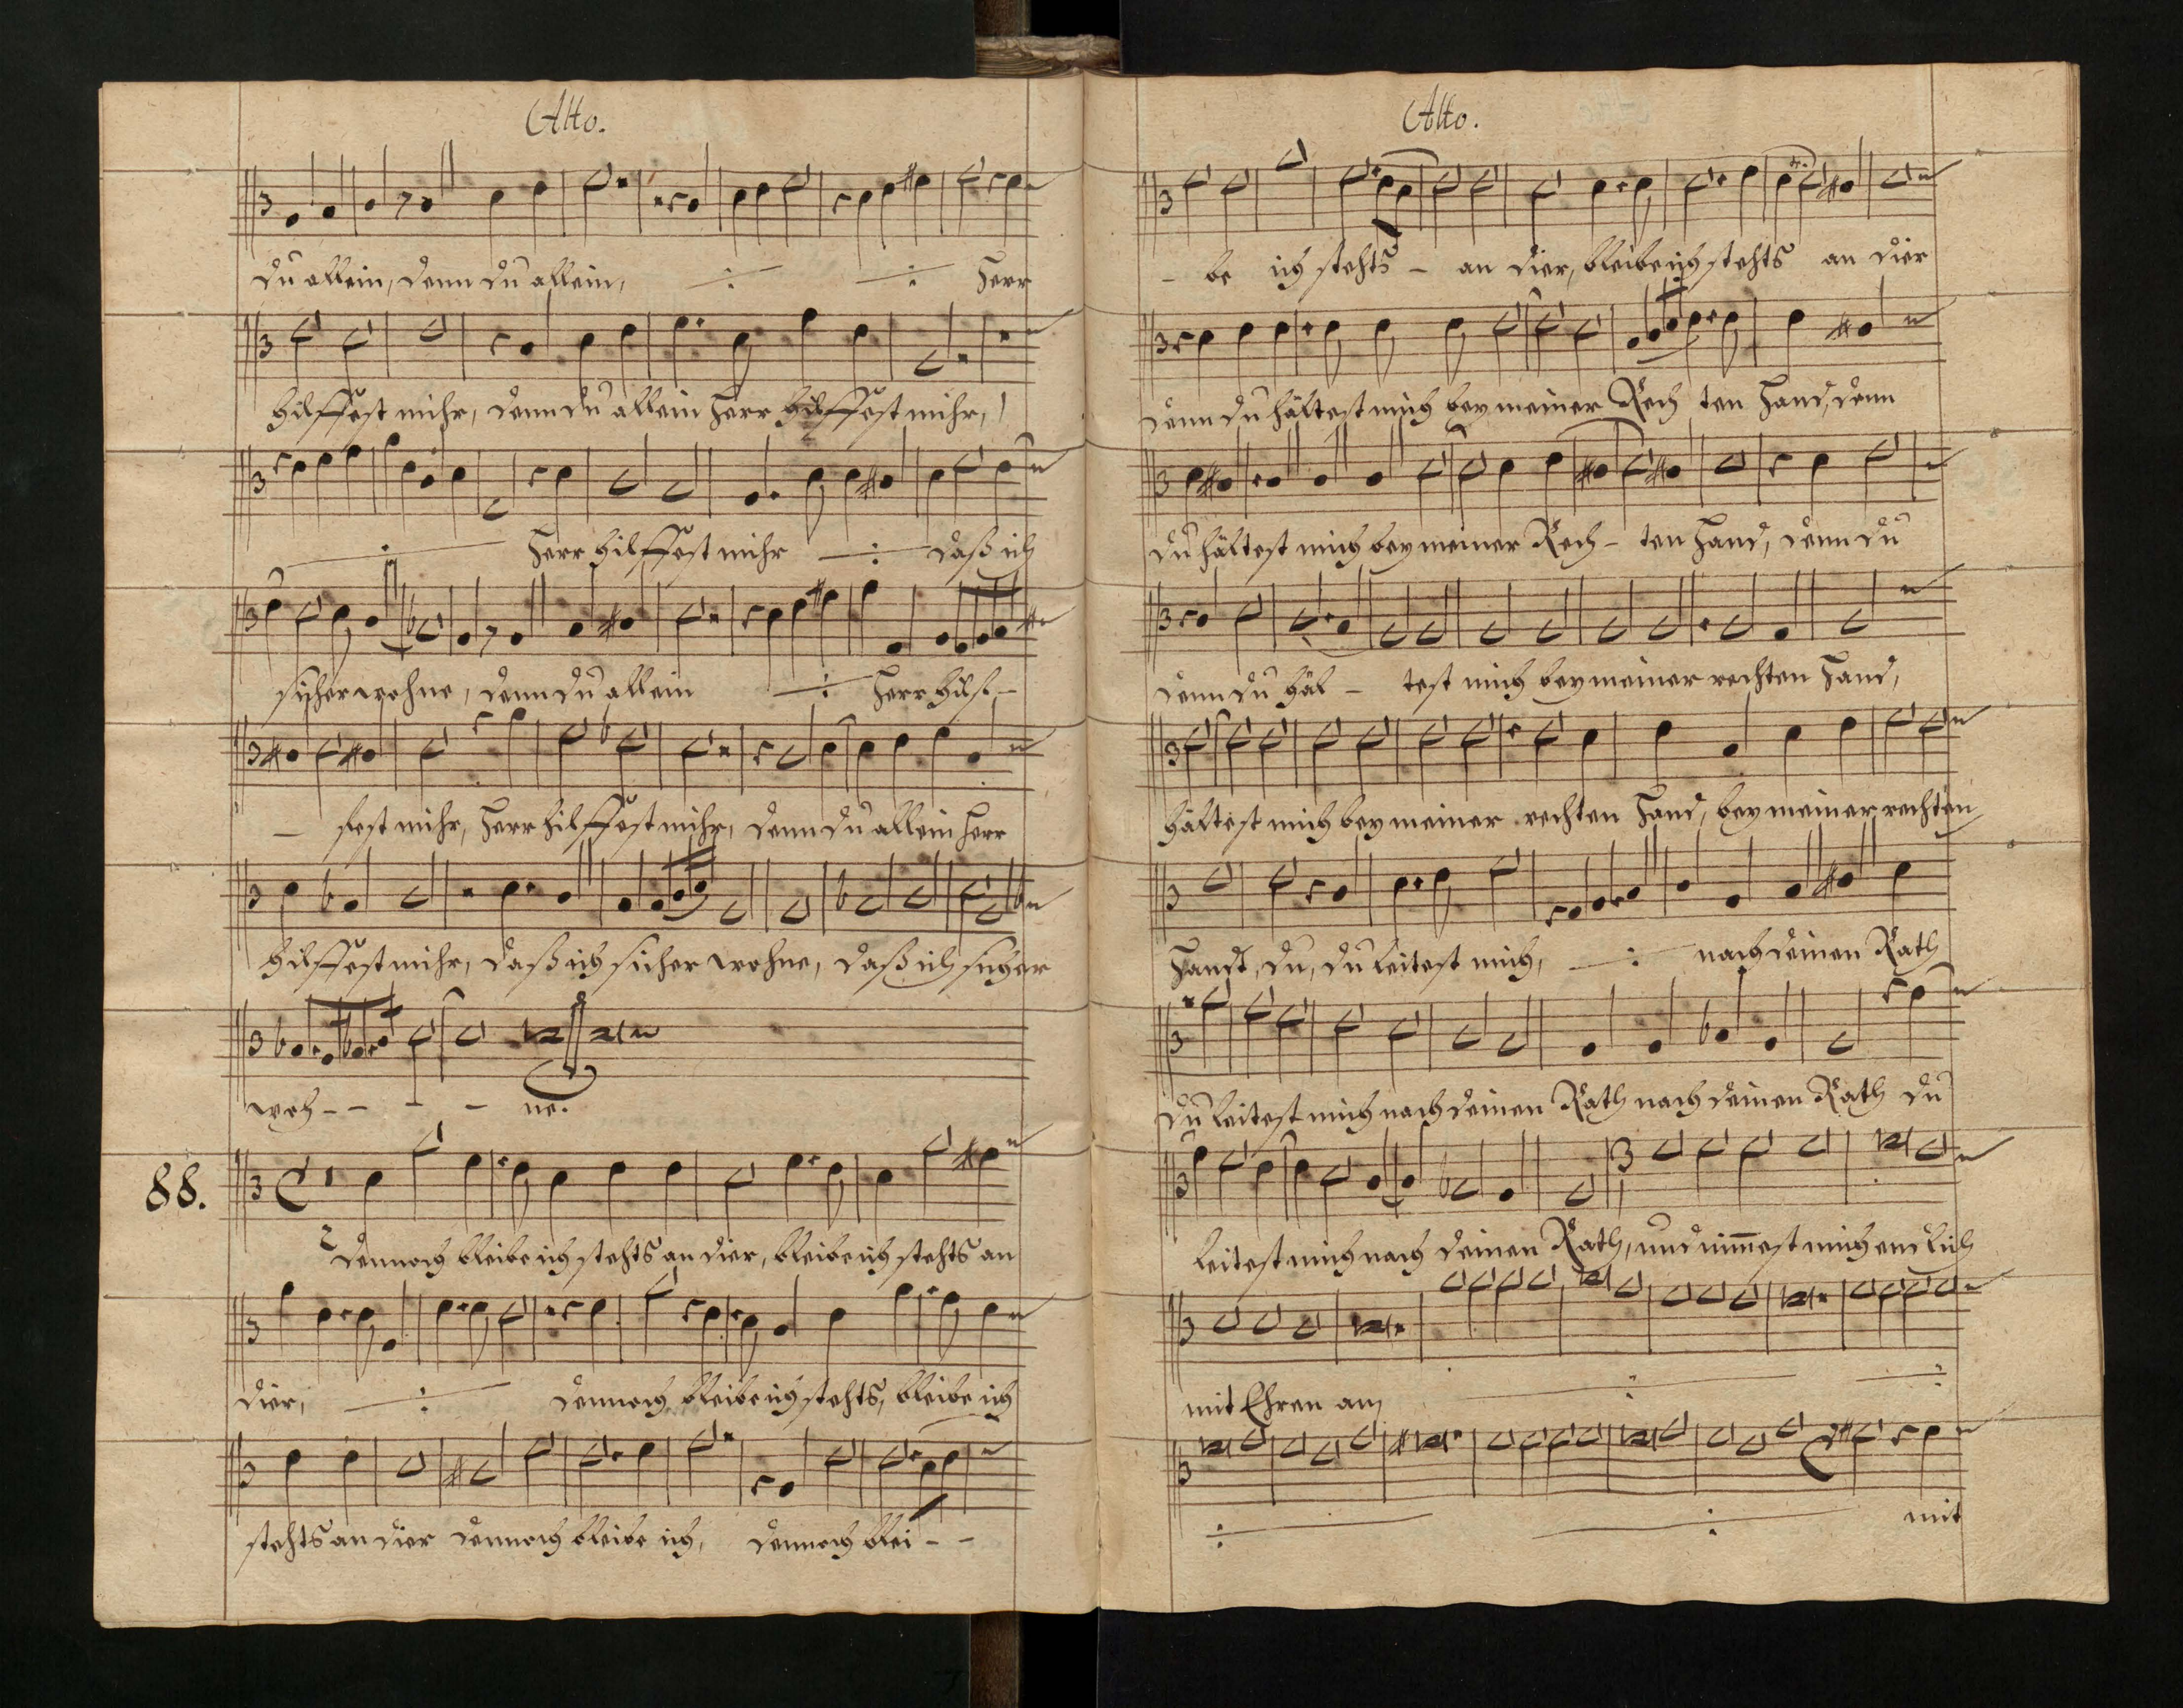 Alto.
du allein, denn du allein, Herr
hilffest mihr, denn du allein Herr hilffest mihr,
Herr hilffest mihr daß ich
sicher wohne, denn du allein Herr hilf-
- fest mihr, Herr hilffest mihr, denn du allein Herr
hilffest mihr, daß ich sicher wohne, daß ich sicher
woh - - - - ne.
88.
dennoch bleibe ich stehts an dier, bleibe ich stehts an
dier, dennoch bleibe ich stehts, bleibe ich
stehts an dier dennoch bleibe ich, dennoch blei - -
Alto.
- be ich stehts - an dier, bleibe ich stehts an dier
denn du hältest mich bey meiner Rech ten Hand, denn
du hältest mich bey meiner Rech - ten Hand, denn du
denn du häl - test mich bey meiner rechten Hand,
hältest mich bey meiner rechten Hand, bey meiner rechten
Handt, du, du leitest mich, nach deinen Rath
du leitest mich nach deinen Rath nach deinen Rath du
leitest mich nach deinen Rath, und nim̅est mich endlich
mit Ehren an,
mit